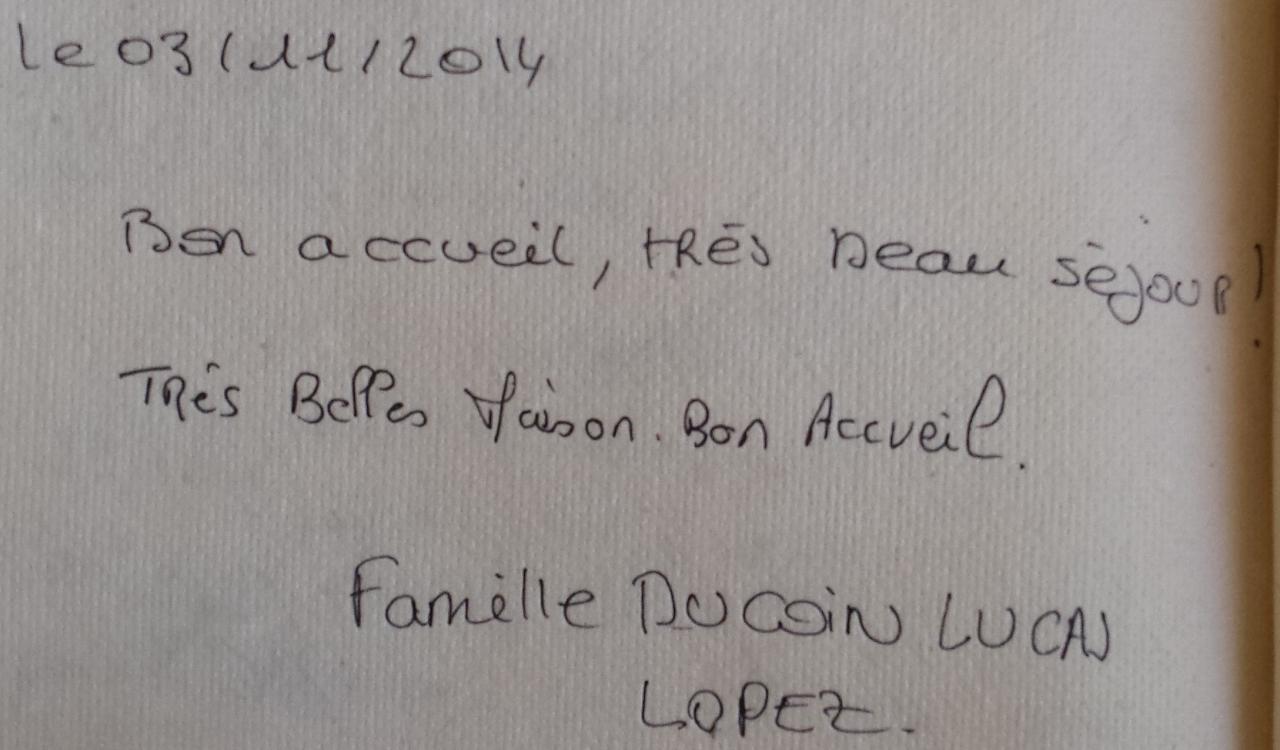 Le 03/11/2014
Bon accueil, très beau séjour!
Très Belles Maison. Bon Accueil.
Famille DUCOIN LUCAS
LOPEZ.